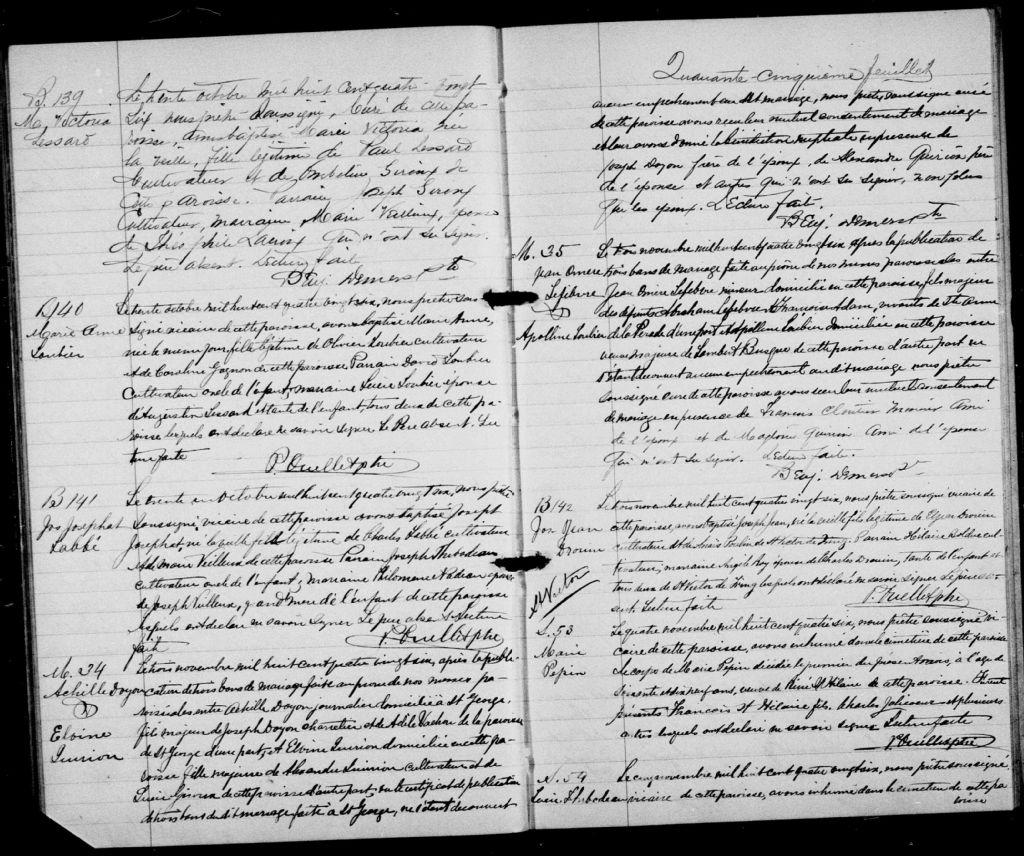 B. 139
M. Victoria
Lessard
Le trente octobre mil huit cent quatre-vingt
six nous prêtre soussigné, curé de cette pa-
roisse, avons baptisé Marie Victoria née
la veille, fille légitime de Paul Lessard
Cultivateur et de Giroux de
cette paroisse. Parrain Joseph Giroux
Cultivateur, marraine Marie Veilleux, épouse
de Théophile Lacroix qui n'ont su signer.
Le père absent. Lecture faite
Benj. Demers Ptr
B 140
Marie Anne
Loubier
Le trente octobre mil huit cent quatre vingt six, nous prêtre sous
signé vicaire de cette paroisse, avons baptisé Marie Anne,
née le même jour fille légitime de Olivier Loubier cultivateur
et de Caroline Gagnon de cette paroisse Parrain David Loubier
cultivateur oncle de l'enfant, marraine Loubier épouse
de Lessard et tante de l'enfant, tous deux de cette pa-
roisse lesquels ont déclaré ne savoir signer Le Père absent. Lec
ture faite
P. Ouellet ptre
B 141
Jos Josephat
Labbé
Le trente un octobre mil huit cent quatre vingt six, nous prêtre
soussigné, vicaire de cette paroisse avons baptisé Joseph
Josephat, né la veille fils légitime de Charles Labbé cultivateur
et de Marie Veilleux de cette paroisse Parrain Joseph Thibodeau
cultivateur oncle de l'enfant, marraine Philomène Nadeau épouse
de Joseph Veilleux, grand mère de l'enfant de cette paroisse
lesquels ont déclaré ne savoir signer Le père absent Lecture
faite
P. Ouellet ptre
M. 34
Achille Doyon
&
Elvine
Quirion
Le trois novembre mil huit cent quatre vingt six, après la publi-
cation de trois bans de mariage faite au prône de nos messes pa-
roissiales entre Achille Doyon journalier domicilié à St George,
fils majeur de Joseph Doyon charretier et de Adèle Vachon de la paroisse
de St George d'une part, et Elvine Quirion domiciliée en cette pa-
roisse fille majeure de Alexandre Quirion cultivateur et de
Giroux de cette paroisse d'autre part, vu le certificat de publication
de trois bans du dit mariage faite à St George, ne s'étant découvert
Quarante-cinquième feuillet
aucun empêchement au dit mariage, nous prêtre, soussigné curé
de cette paroisse avons reçu leur mutuel consentement de mariage
et leur avons donné la bénédiction nuptiale en présence de
Joseph Doyon frère de l'époux, de Alexandre Quirion père
de l'épouse et autres qui n'ont su signer, non plus
que les époux. Lecture faite.
Benj. Demers Ptr
M. 35
Jean Omère
Lefebvre
&
Apolline Loubier
Le trois novembre mil huit cent quatre vingt six, après la publication de
trois bans de mariage faite au prône de nos messes paroissiales entre
Jean Omère Lefebvre mineur domicilié en cette paroisse, fils majeur
des défunts Abraham Lefebvre & Françoise Adam, vivants de Ste Anne
de la Pérade d'une part et Apolline Loubier domiciliée en cette paroisse
veuve majeure de Lambert Busque de cette paroisse d'autre part ne
s'étant découvert aucun empêchement au dit mariage nous prêtre
soussigné curé de cette paroisse avons reçu leur mutuel consentement
de mariage en présence de Francois Cloutier Ami
de l'époux et de Magloire Quirion Ami de l'épouse
qui n'ont su signer. Lecture faite.
Benj. Demers Ptr
B 142
Jos Jean
Drouin
St Victor
Le trois novembre mil huit cent quatre vingt six, nous prêtre soussigné vicaire de
cette paroisse, avons baptisé Joseph Jean, né la veille fils légitime de Elzear Drouin
cultivateur et de Anaïs Poulin de St Victor de Tring. Parrain Hilaire cul-
tivateur, marraine Angèle Roy épouse de Charles Drouin, tante de l'enfant et
tous deux de St Victor de Tring lesquels ont déclaré ne savoir signer Le père ab-
sent Lecture faite
P. Ouellet ptre
S. 53
Marie
Pepin
Le quatre novembre mil huit cent quatre vingt six, nous prêtre soussigné vi
caire de cette paroisse, avons inhumé dans le cimetière de cette paroisse
le corps de Marie Pepin décédée le premier du présent mois, à l'age de
soixante et dix neuf ans, veuve de René St Hilaire de cette paroisse. Etaient
présents Francois St Hilaire fils, Charles Jolicoeur et plusieurs
autres lesquels ont déclaré ne savoir signer Lecture faite
P. Ouellet ptre
S. 54
Thibodeau
Le cinq novembre mil huit cent quatre vingt six, nous prêtre soussigné
vicaire de cette paroisse, avons inhumé dans le cimetière de cette pa
roisse